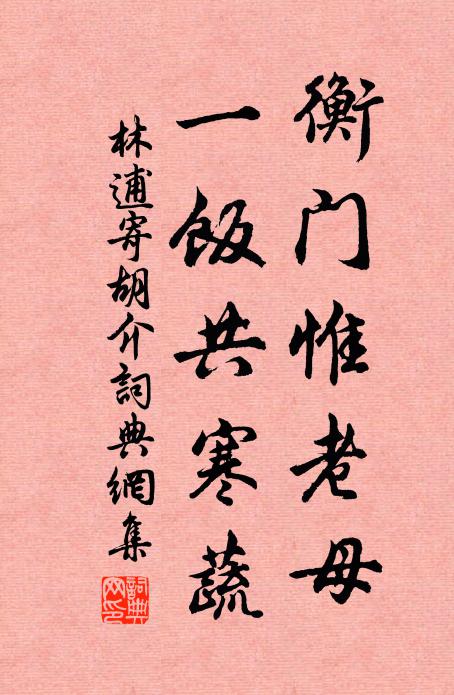 衡门惟老母
一飯共寒蔬
林逋寄胡介詞典網集
詞典網印